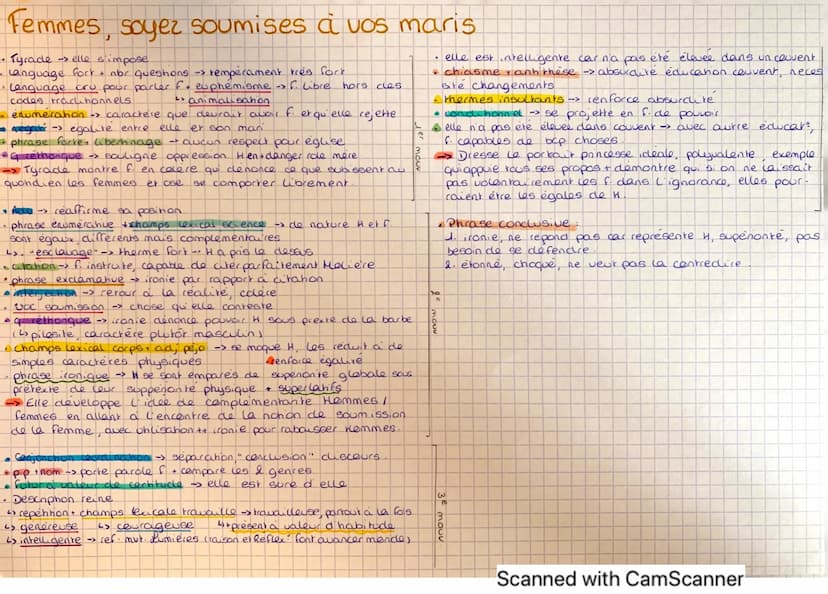 Femmes, soyez soumises à vos maris
• Tyrade → elle s'impose
• Language fort + nbr questions → tempérament très fort
• Language cru pour parler f + euphémisme → f. libre hors des
codes traditionnels ↳ animalisation
• énumération → caractère que devrait avoir f. et qu'elle rejette
→ égalité entre elle et son mari
• phrase forte + libertinage → aucun respect pour église
• q réthorique → souligne oppression H en + danger role mère
→ Tyrade montre f. en colère qui dénonce ce que subissent au
quotidien les femmes et ose se comporter librement.
1er mouv
→ réaffirme sa position
• phrase énumérative + champs lexical science → de nature H et f
sont égaux, différents mais complémentaires
↳ "esclavage" → therme fort → H a pris le dessus
• citation → f. instruite, capable de citer parfaitement Molière
• phrase exclamative → ironie par rapport à citation
• interjection → retour à la réalité, colère
• voc soumission → chose qu'elle conteste
• q réthorique → ironie dénonce pouvoir H sous prexte de la barbe
(↳ pilosité, caractère plutôt masculin)
• champs lexical corps + adj péjo → se moque H, les réduit à de
simples caractères physiques renforce égalité
• phrase ironique → H se sont emparés de supériorité globale sous
prétexte de leur suppériorité physique + superlatifs
→ Elle développe l'idée de complémentarité Hommes /
femmes en allant à l'encontre de la notion de soumission
de la femme, avec utilisation ++ ironie pour rabaisser Hommes.
2e mouv
• Conjonction → séparation, "conclusion" discours.
• p.p + nom → porte parole f + compare les 2 genres
• futur à valeur de certitude → elle est sûre d'elle
• Description reine
↳ répétition + champs lexicale travaille → travailleuse, partout à la fois
↳ généreuse ↳ courageuse ↳ présent à valeur d'habitude
↳ intelligente → ref. mvt Lumières (raison et Reflex° font avancer monde)
3e mouv
• elle est intelligente car n'a pas été élevée dans un couvent
• chiasme + antithèse → absurdité éducation couvent, néces
sité changements
• thermes insultants → renforce absurdité
• conditionnel → se projette en f. de pouvoir
• elle n'a pas été élevée dans couvent → avec autre éducat°,
f. capables de bcp choses.
→ Dresse le portrait princesse idéale, polyvalente, exemple
qui appuie tous ses propos + démontre que si on ne laissait
pas volontairement les f dans l'ignorance, elles pour-
raient être les égales de H.
• Phrase conclusive :
1. ironie, ne répond pas car représente H, supériorité, pas
besoin de se défendre.
2. étonné, choqué, ne veut pas la contredire.
Scanned with CamScanner